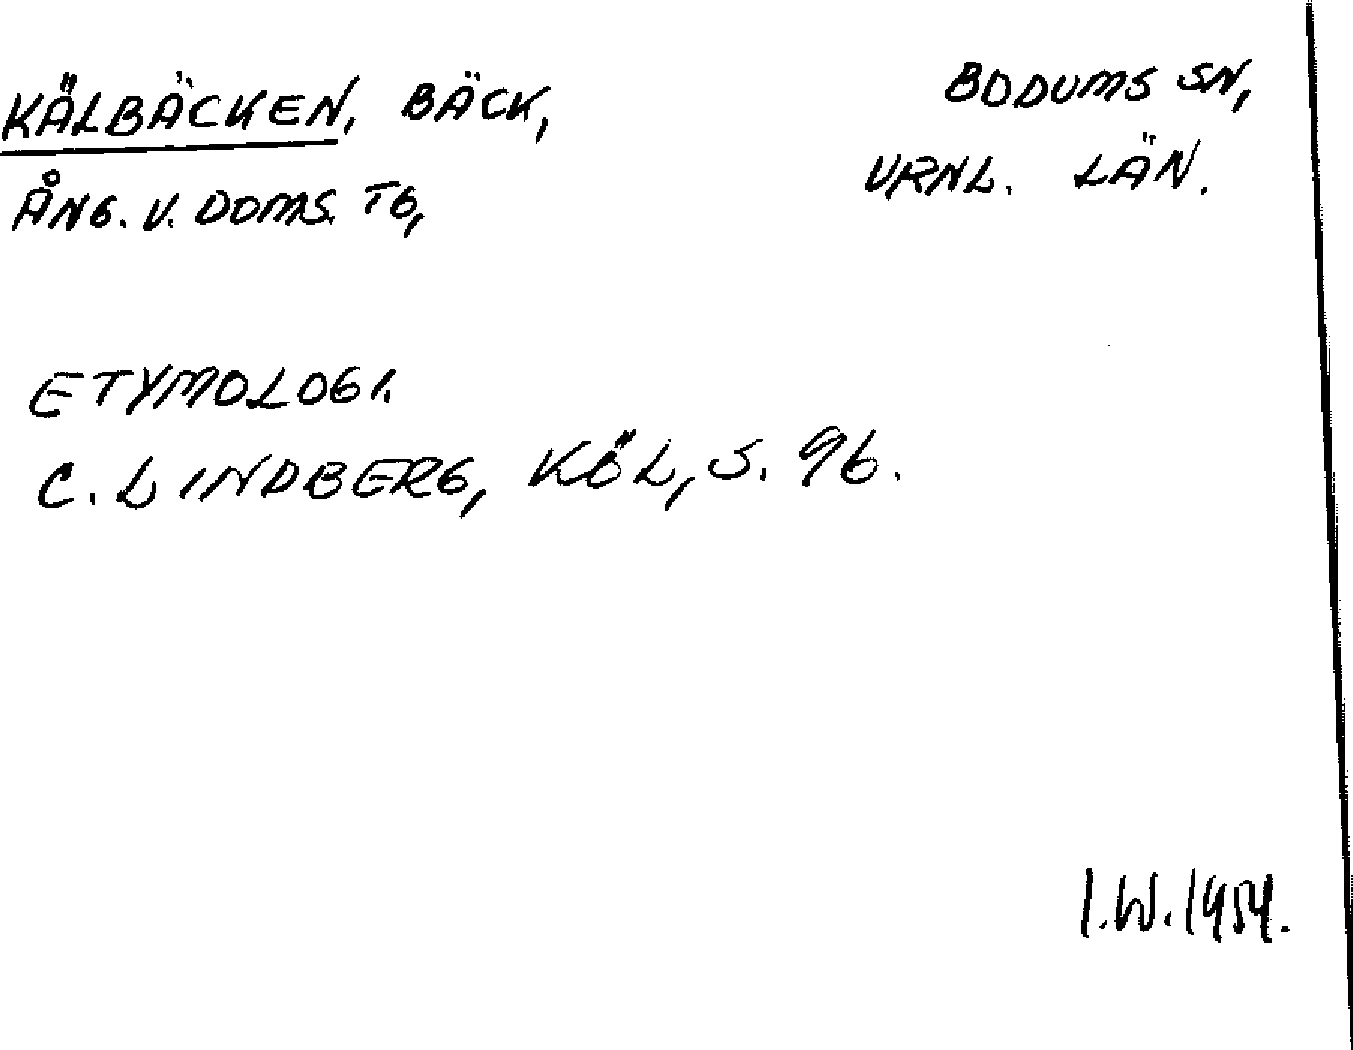 KÄLBÄCKEN, BÄCK,
BODUMS SN,
ÅNG. V. DOMS. TG,
VRNL. LÄN.
ETYMOLOGI.
C. LINDBERG, KÖL, S. 96.
I.W. 1954.